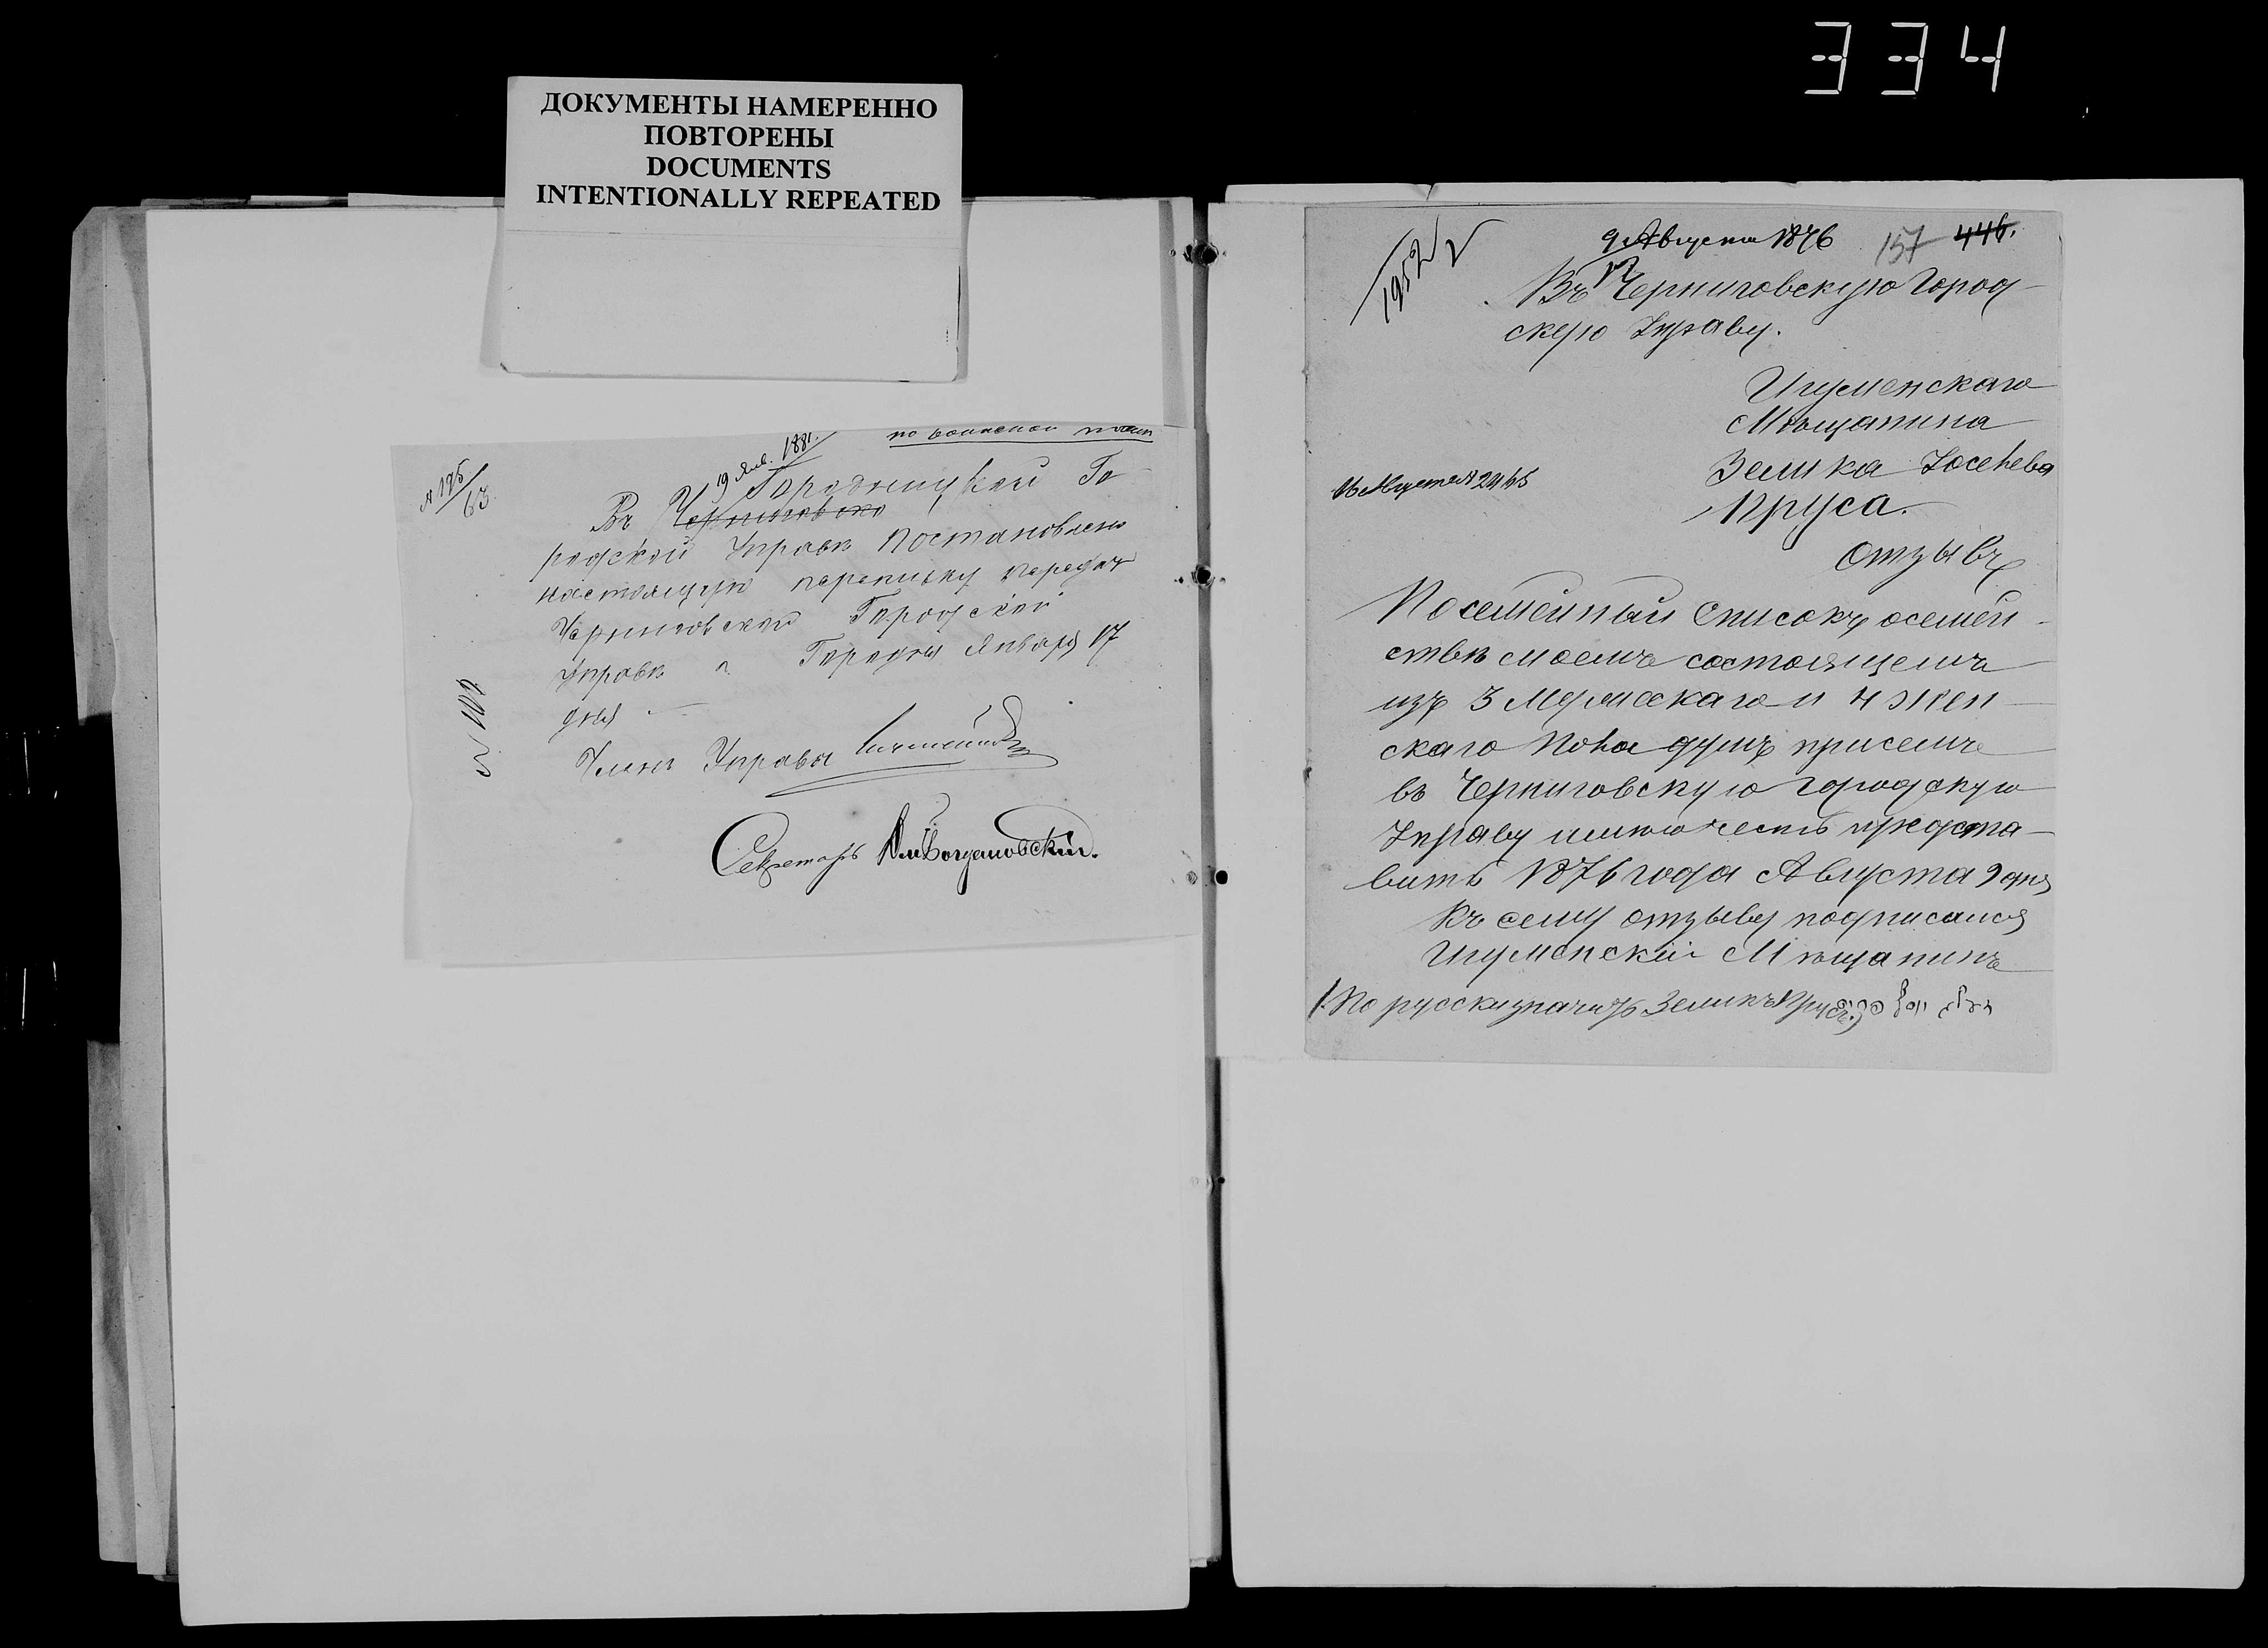 334
ДОКУМЕНТЫ НАМЕРЕННО
ПОВТОРЕНЫ
DOCUMENTS
INTENTIONALLY REPEATED
по воинской
19 Янв. 1881.
№ 195/63
Въ Черниговско Городницкой Го
родской Управѣ Постановлено
настоящую переписку передать
Черниговской Городской
Управѣ Городня Января 17
дня
№ 102
Членъ Управы
Секретарь
9 Августа 1876
157 446.
1952
Въ Черниговскую Город
скую Управу.
Игуменскаго
Мѣщанина
Зелика Іоселева
Пруса.
Отзывъ
Посемейный списокъ осемей
ствѣ моемъ состоящемъ
изъ 3 Мужескаго и 4 Жен
скаго Пола душъ присемъ
въ Черниговскую Городскую
Управу имѣю честь предста
вить 1876 года Августа 9 дня
Къ сему отзыву подписался
Игуменскій Мѣщанинъ
По русски значитъ Зеликъ Прусъ